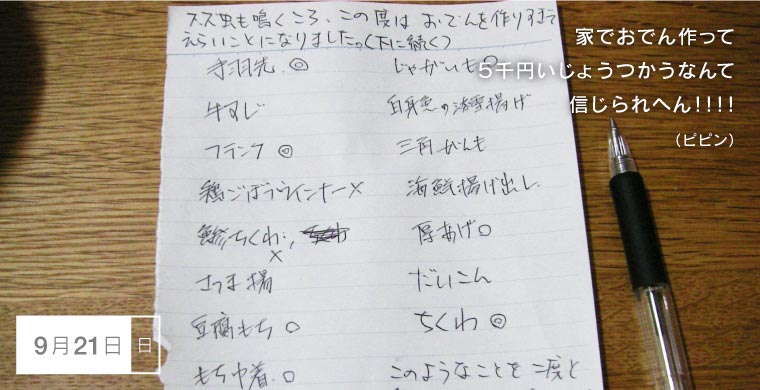 スズ虫も鳴くころ、この度は おでんを作りすぎて
えらいことになりました。(下に続く)
手羽先 ◎ じゃがいも ◎
牛すじ 白身魚の淡雪揚げ
フランク ◎ 三角がんも
鶏ごぼうウインナー × 海鮮揚げ出し
ちくわ ×  厚あげ ○
さつま揚 だいこん
豆腐もち ○ ちくわ ◎
もち巾着 ○ このようなことを 二度と
家でおでん作って
5千円いじょうつかうなんて
信じられへん!!!!
(ピピン)
9月21日 日